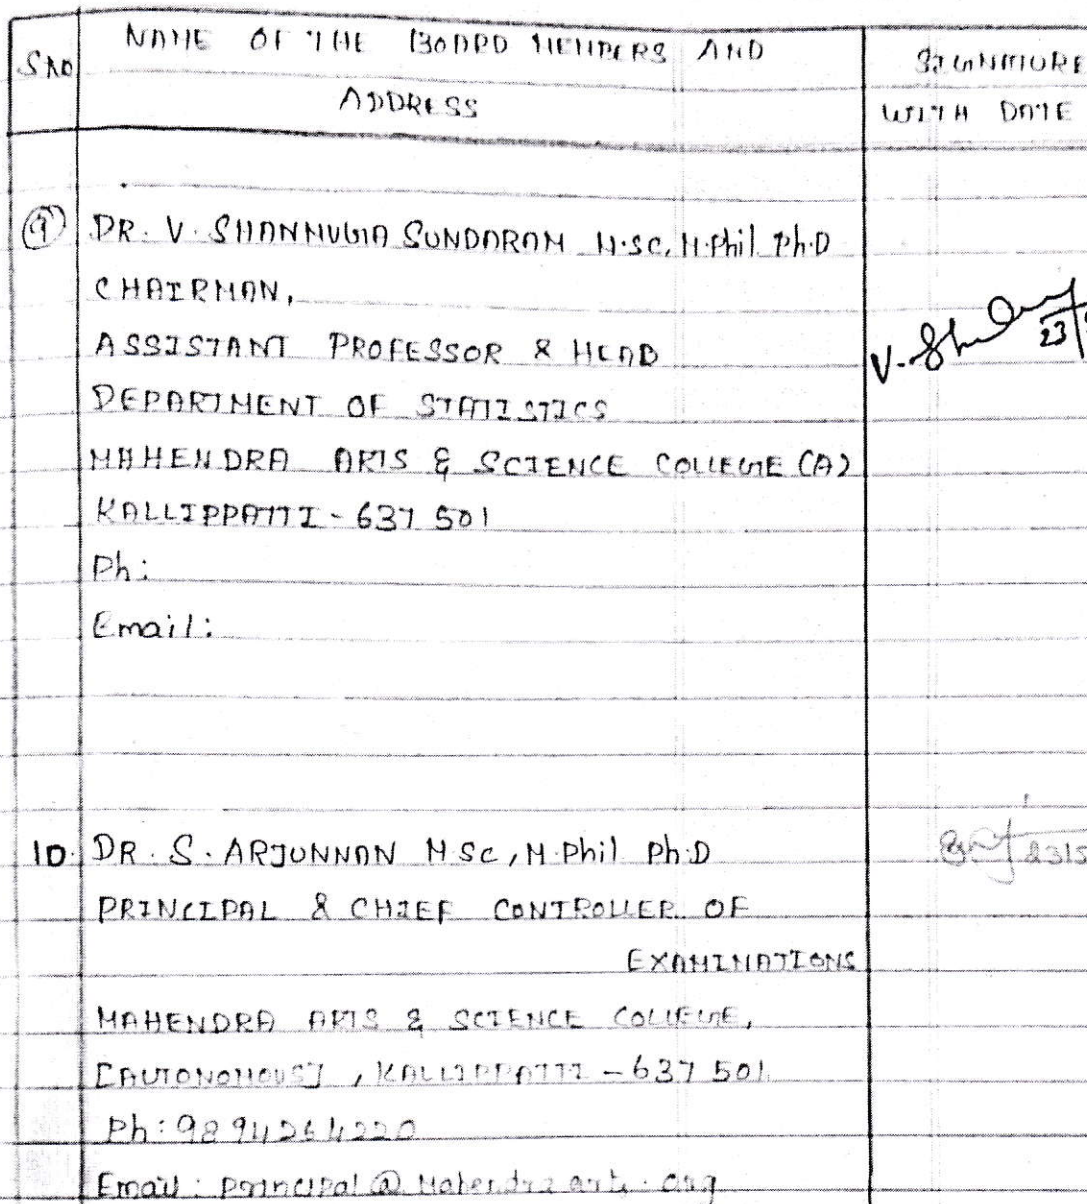 S.NO
NAME OF THE BOARD MEMBERS AND
ADDRESS
SIGNATURE
WITH DATE
9
DR. V. SHANMUGA SUNDARAM M.Sc, M.Phil Ph.D
CHAIRMAN,
ASSISTANT PROFESSOR & HEAD
DEPARTMENT OF STATISTICS
MAHENDRA ARTS & SCIENCE COLLEGE (A)
KALLIPPATTI - 637 501
Ph:
Email:
V.
23/
10. DR. S. ARJUNNAN M.Sc, M.Phil Ph.D
PRINCIPAL & CHIEF CONTROLLER OF
EXAMINATIONS
MAHENDRA ARTS & SCIENCE COLLEGE,
[AUTONOMOUS], KALLIPPATTI - 637 501.
Ph: 9894264220
Email: principal@Mahendraarts.org
23/5